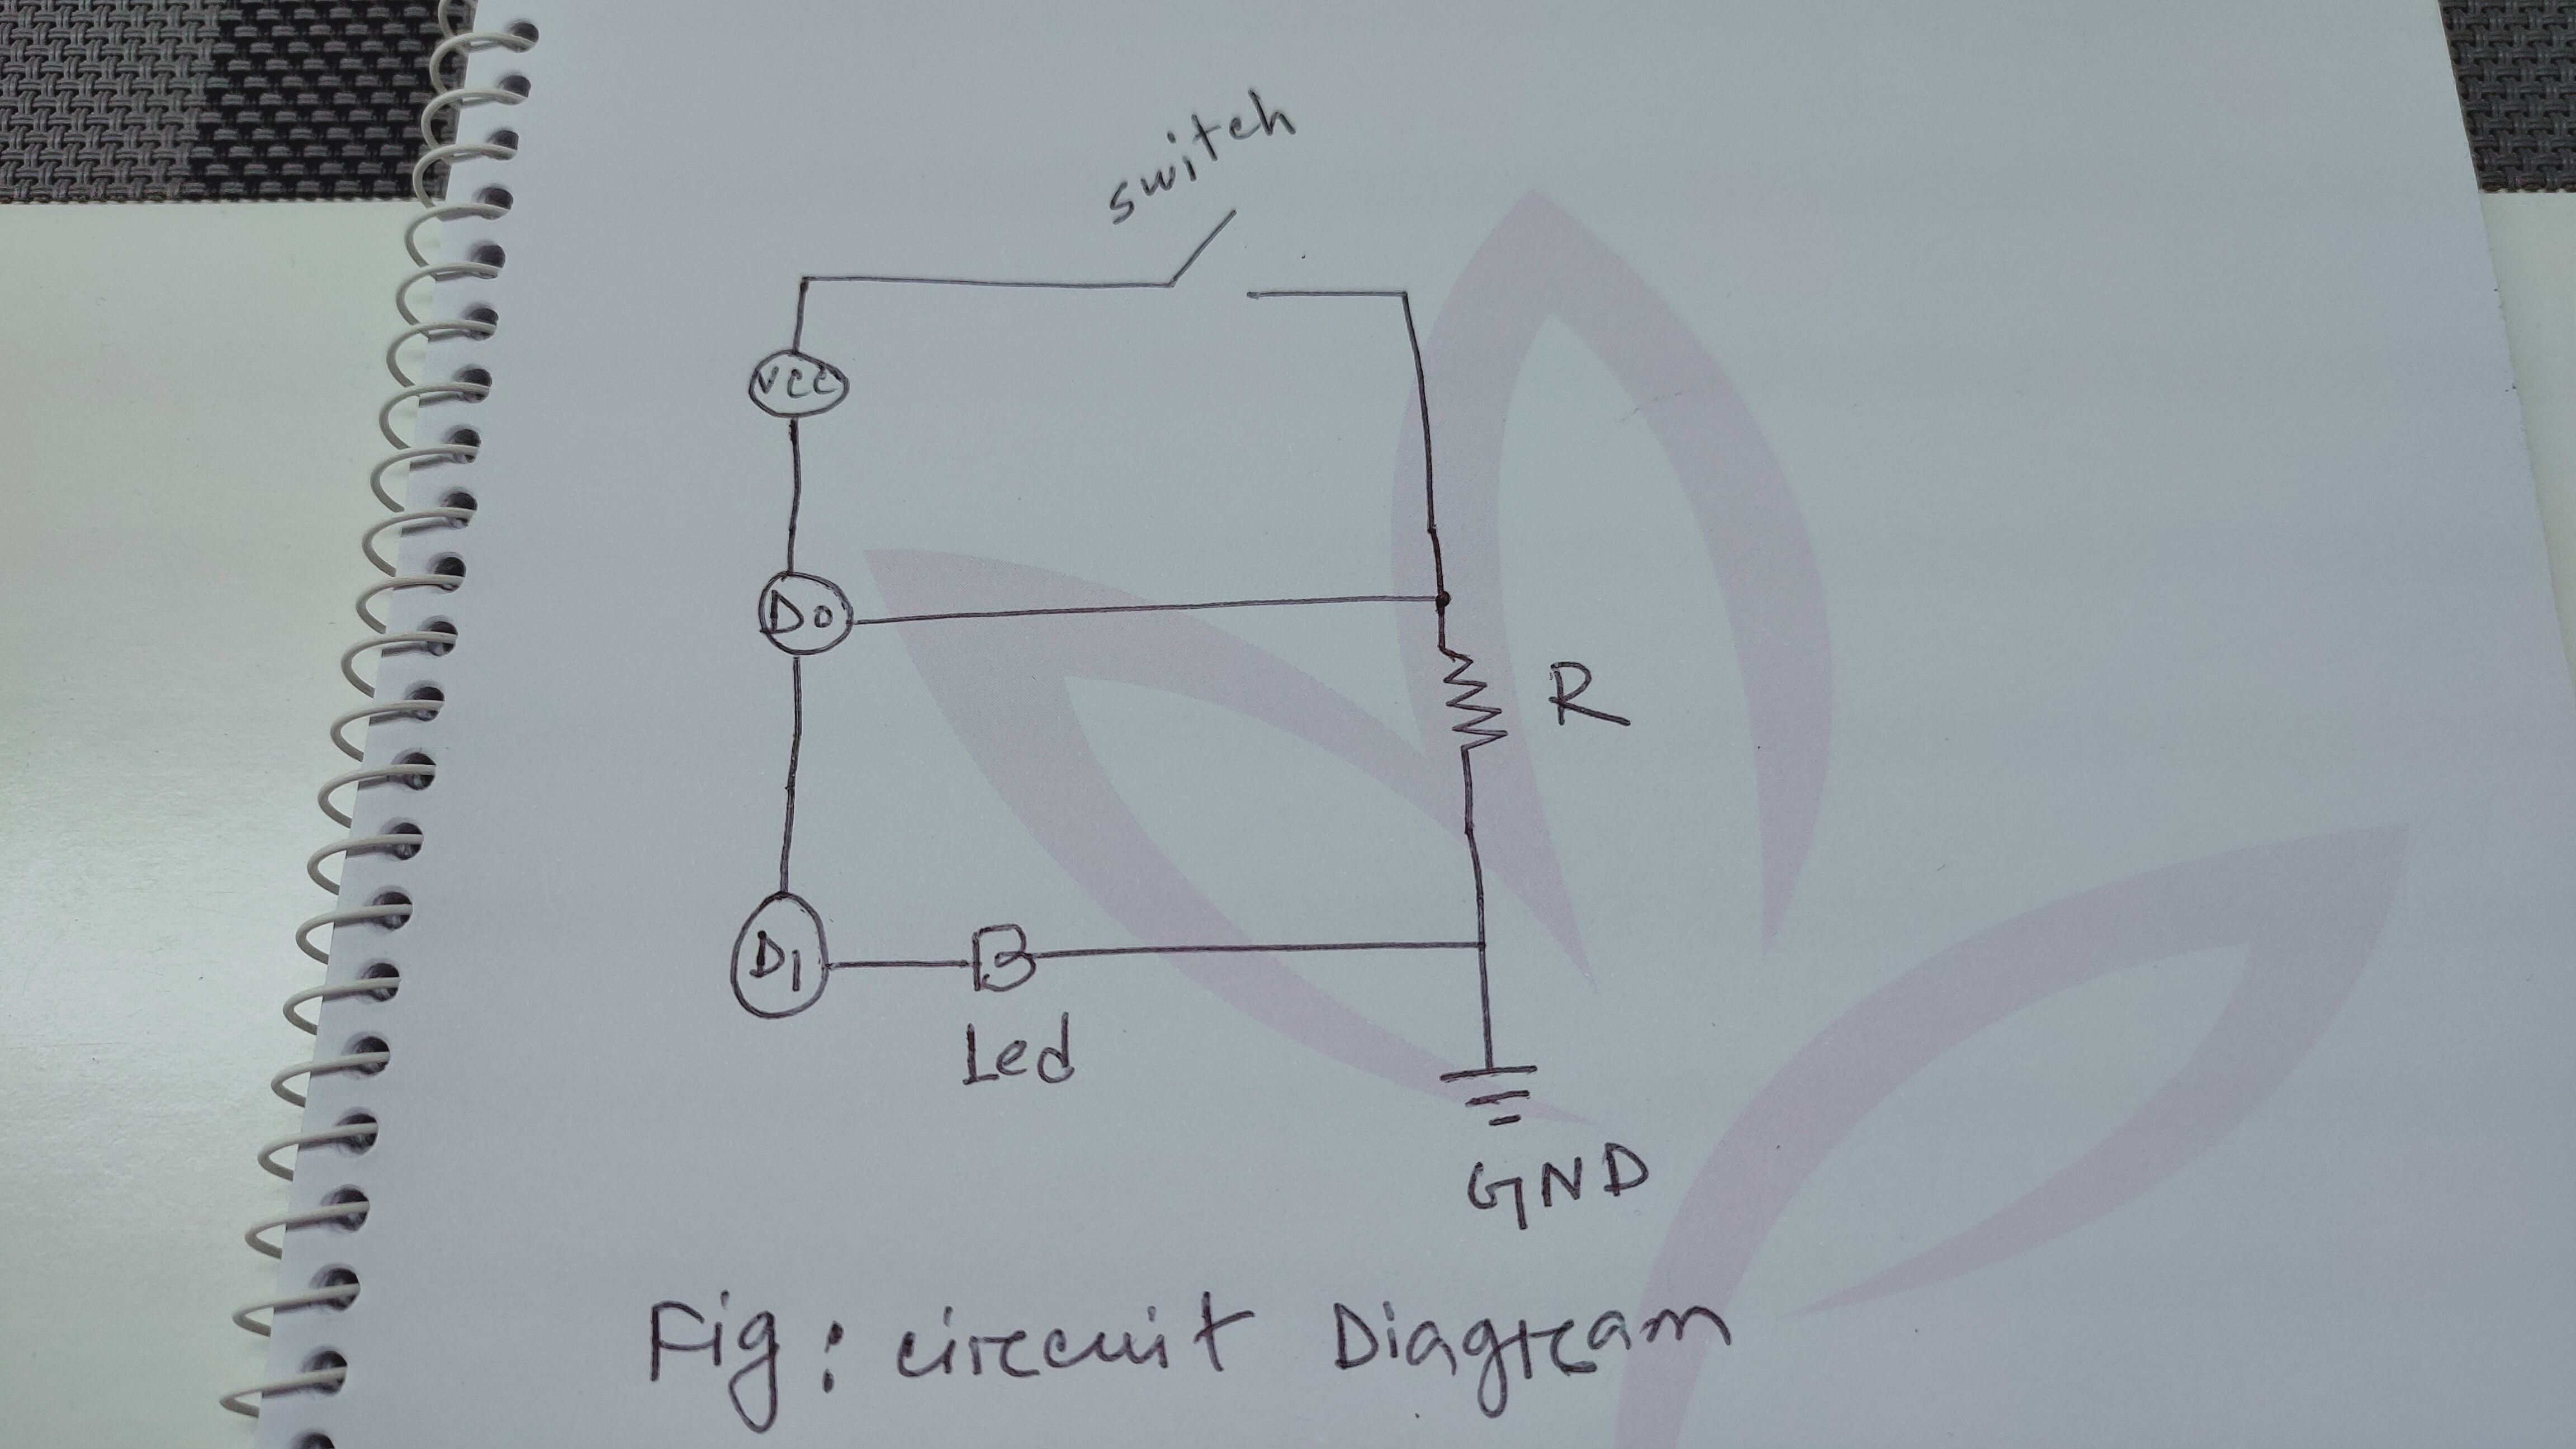 switch
VCC
D0
R
D1
Led
GND
Fig: circuit Diagram